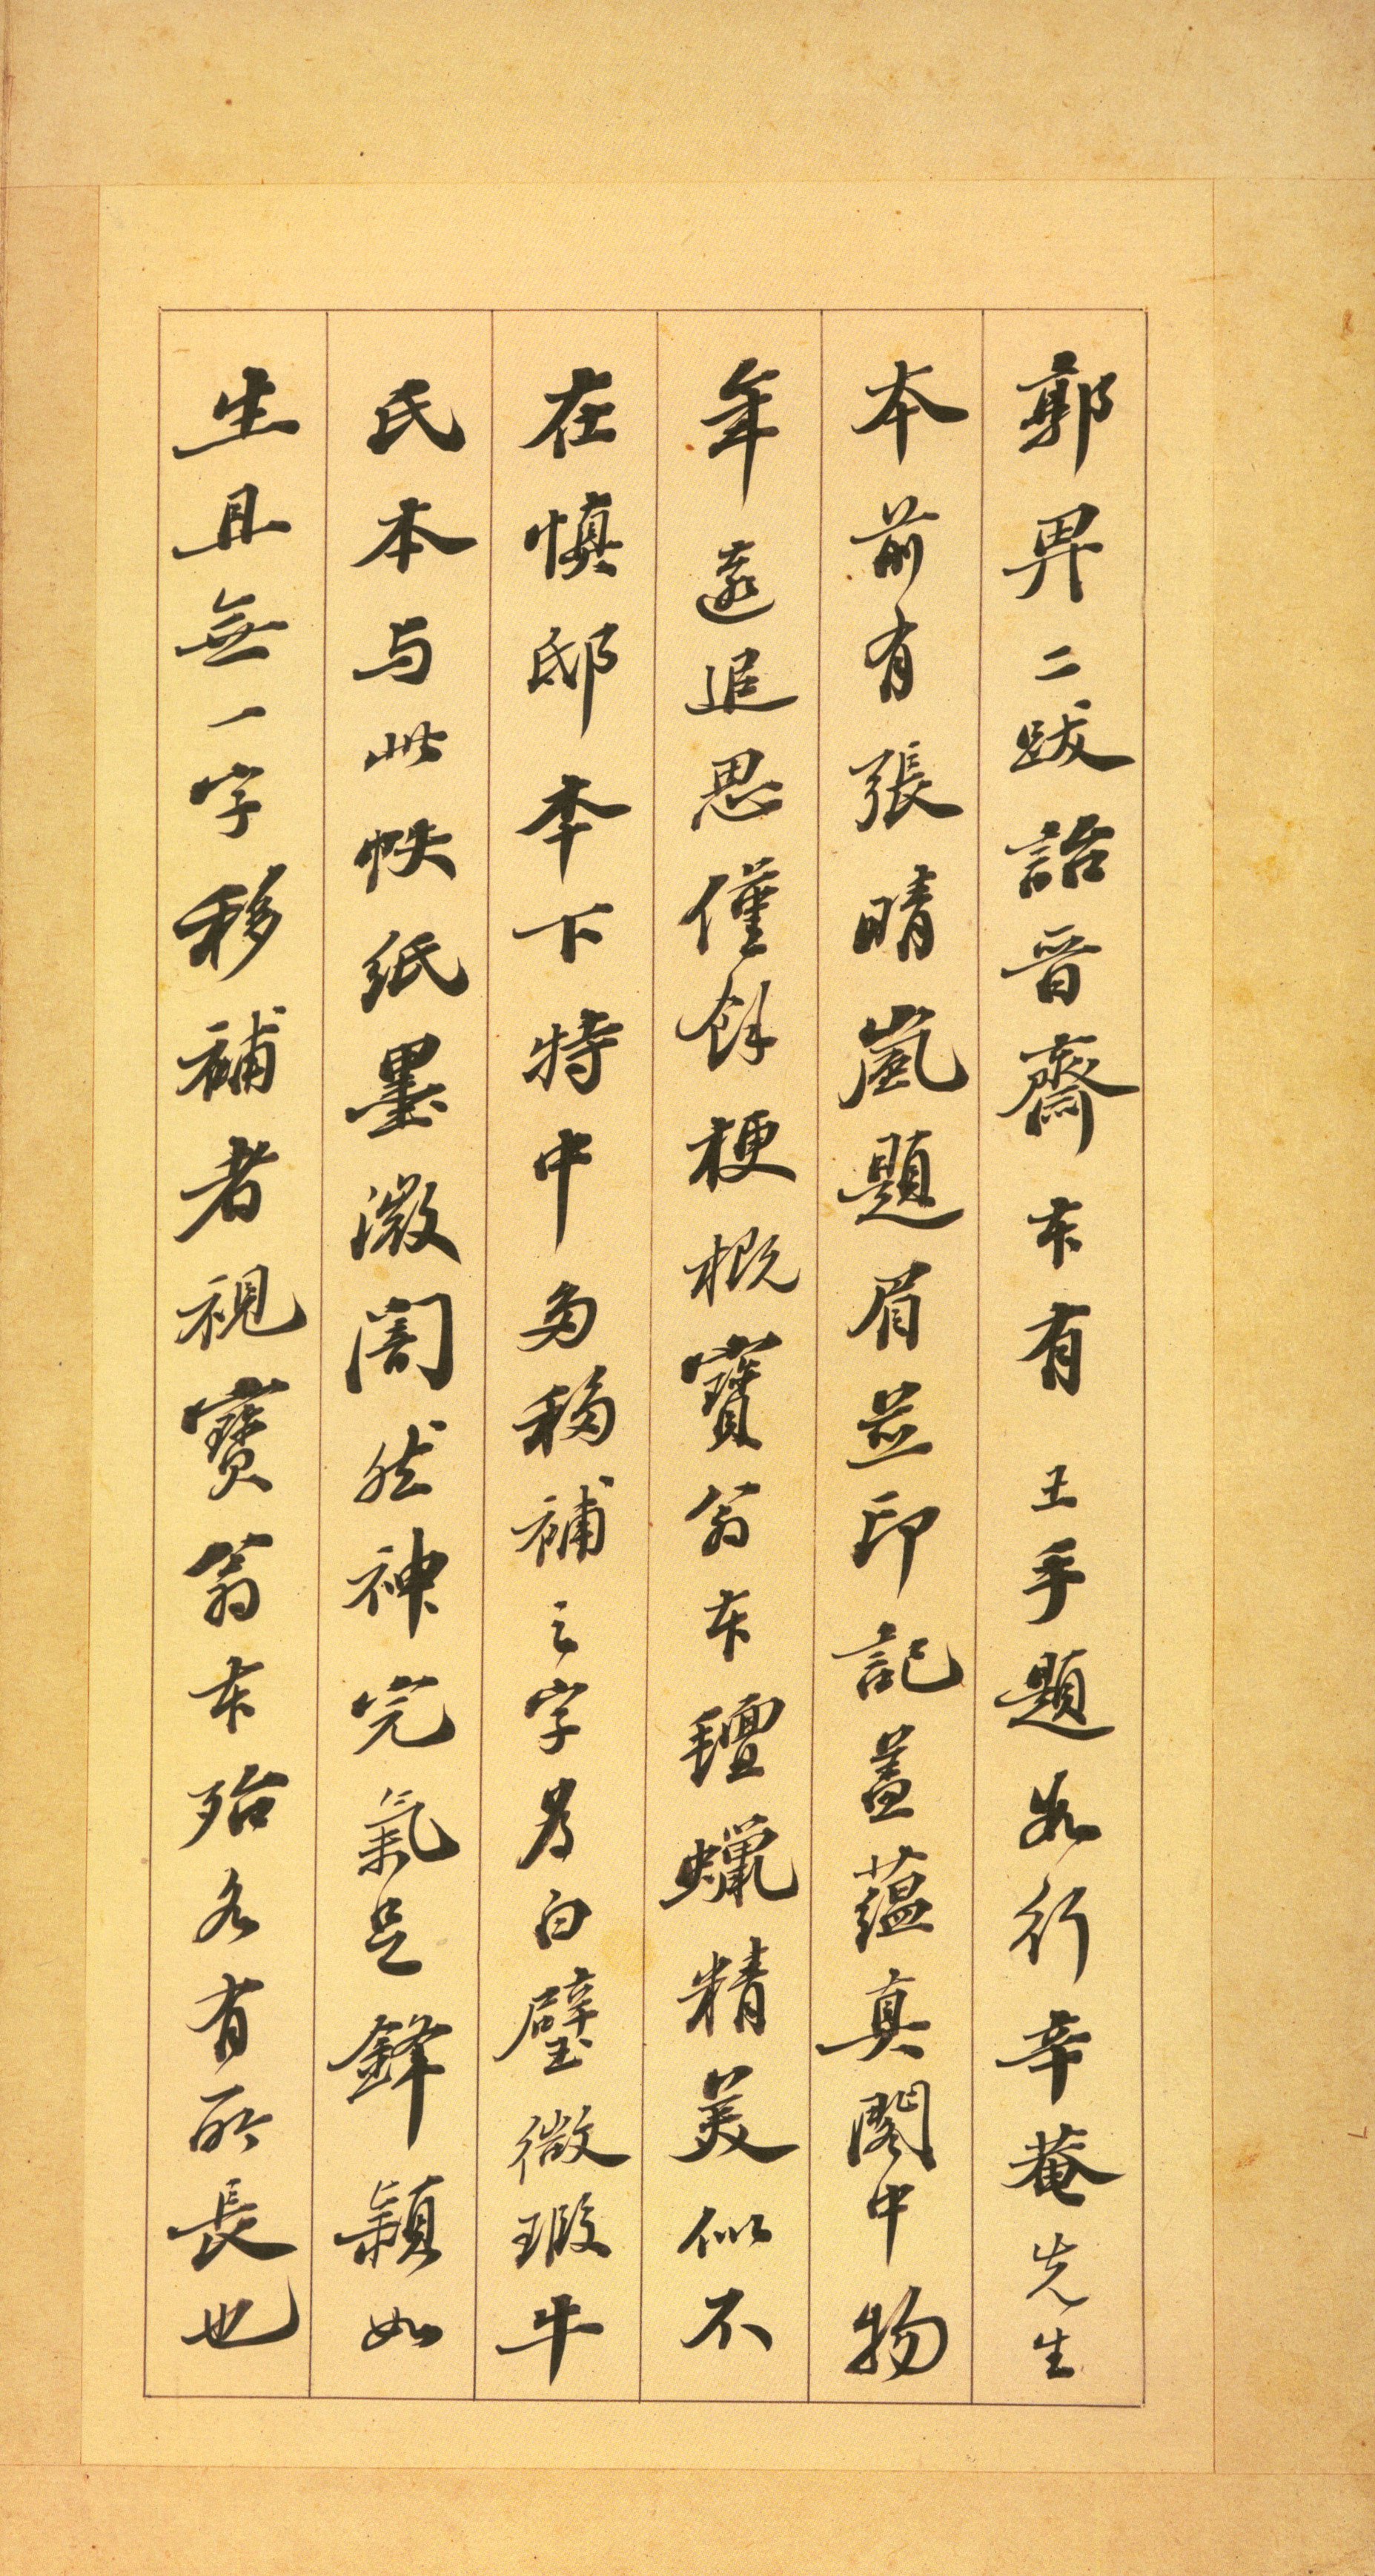 郭畀二跋詒晉齋本有王手題數行辛菴先生
本前有張晴嵐題眉並印記蓋蘊真閣中物
年遠追思僅餘梗概寶翁本氊蠟精美似不
在慎邸本下特中多移補之字為白璧微瑕牛
氏本与此帙紙墨激闇然神完氣足鋒穎如
生且無一字移補者視寶翁本殆各有所長也